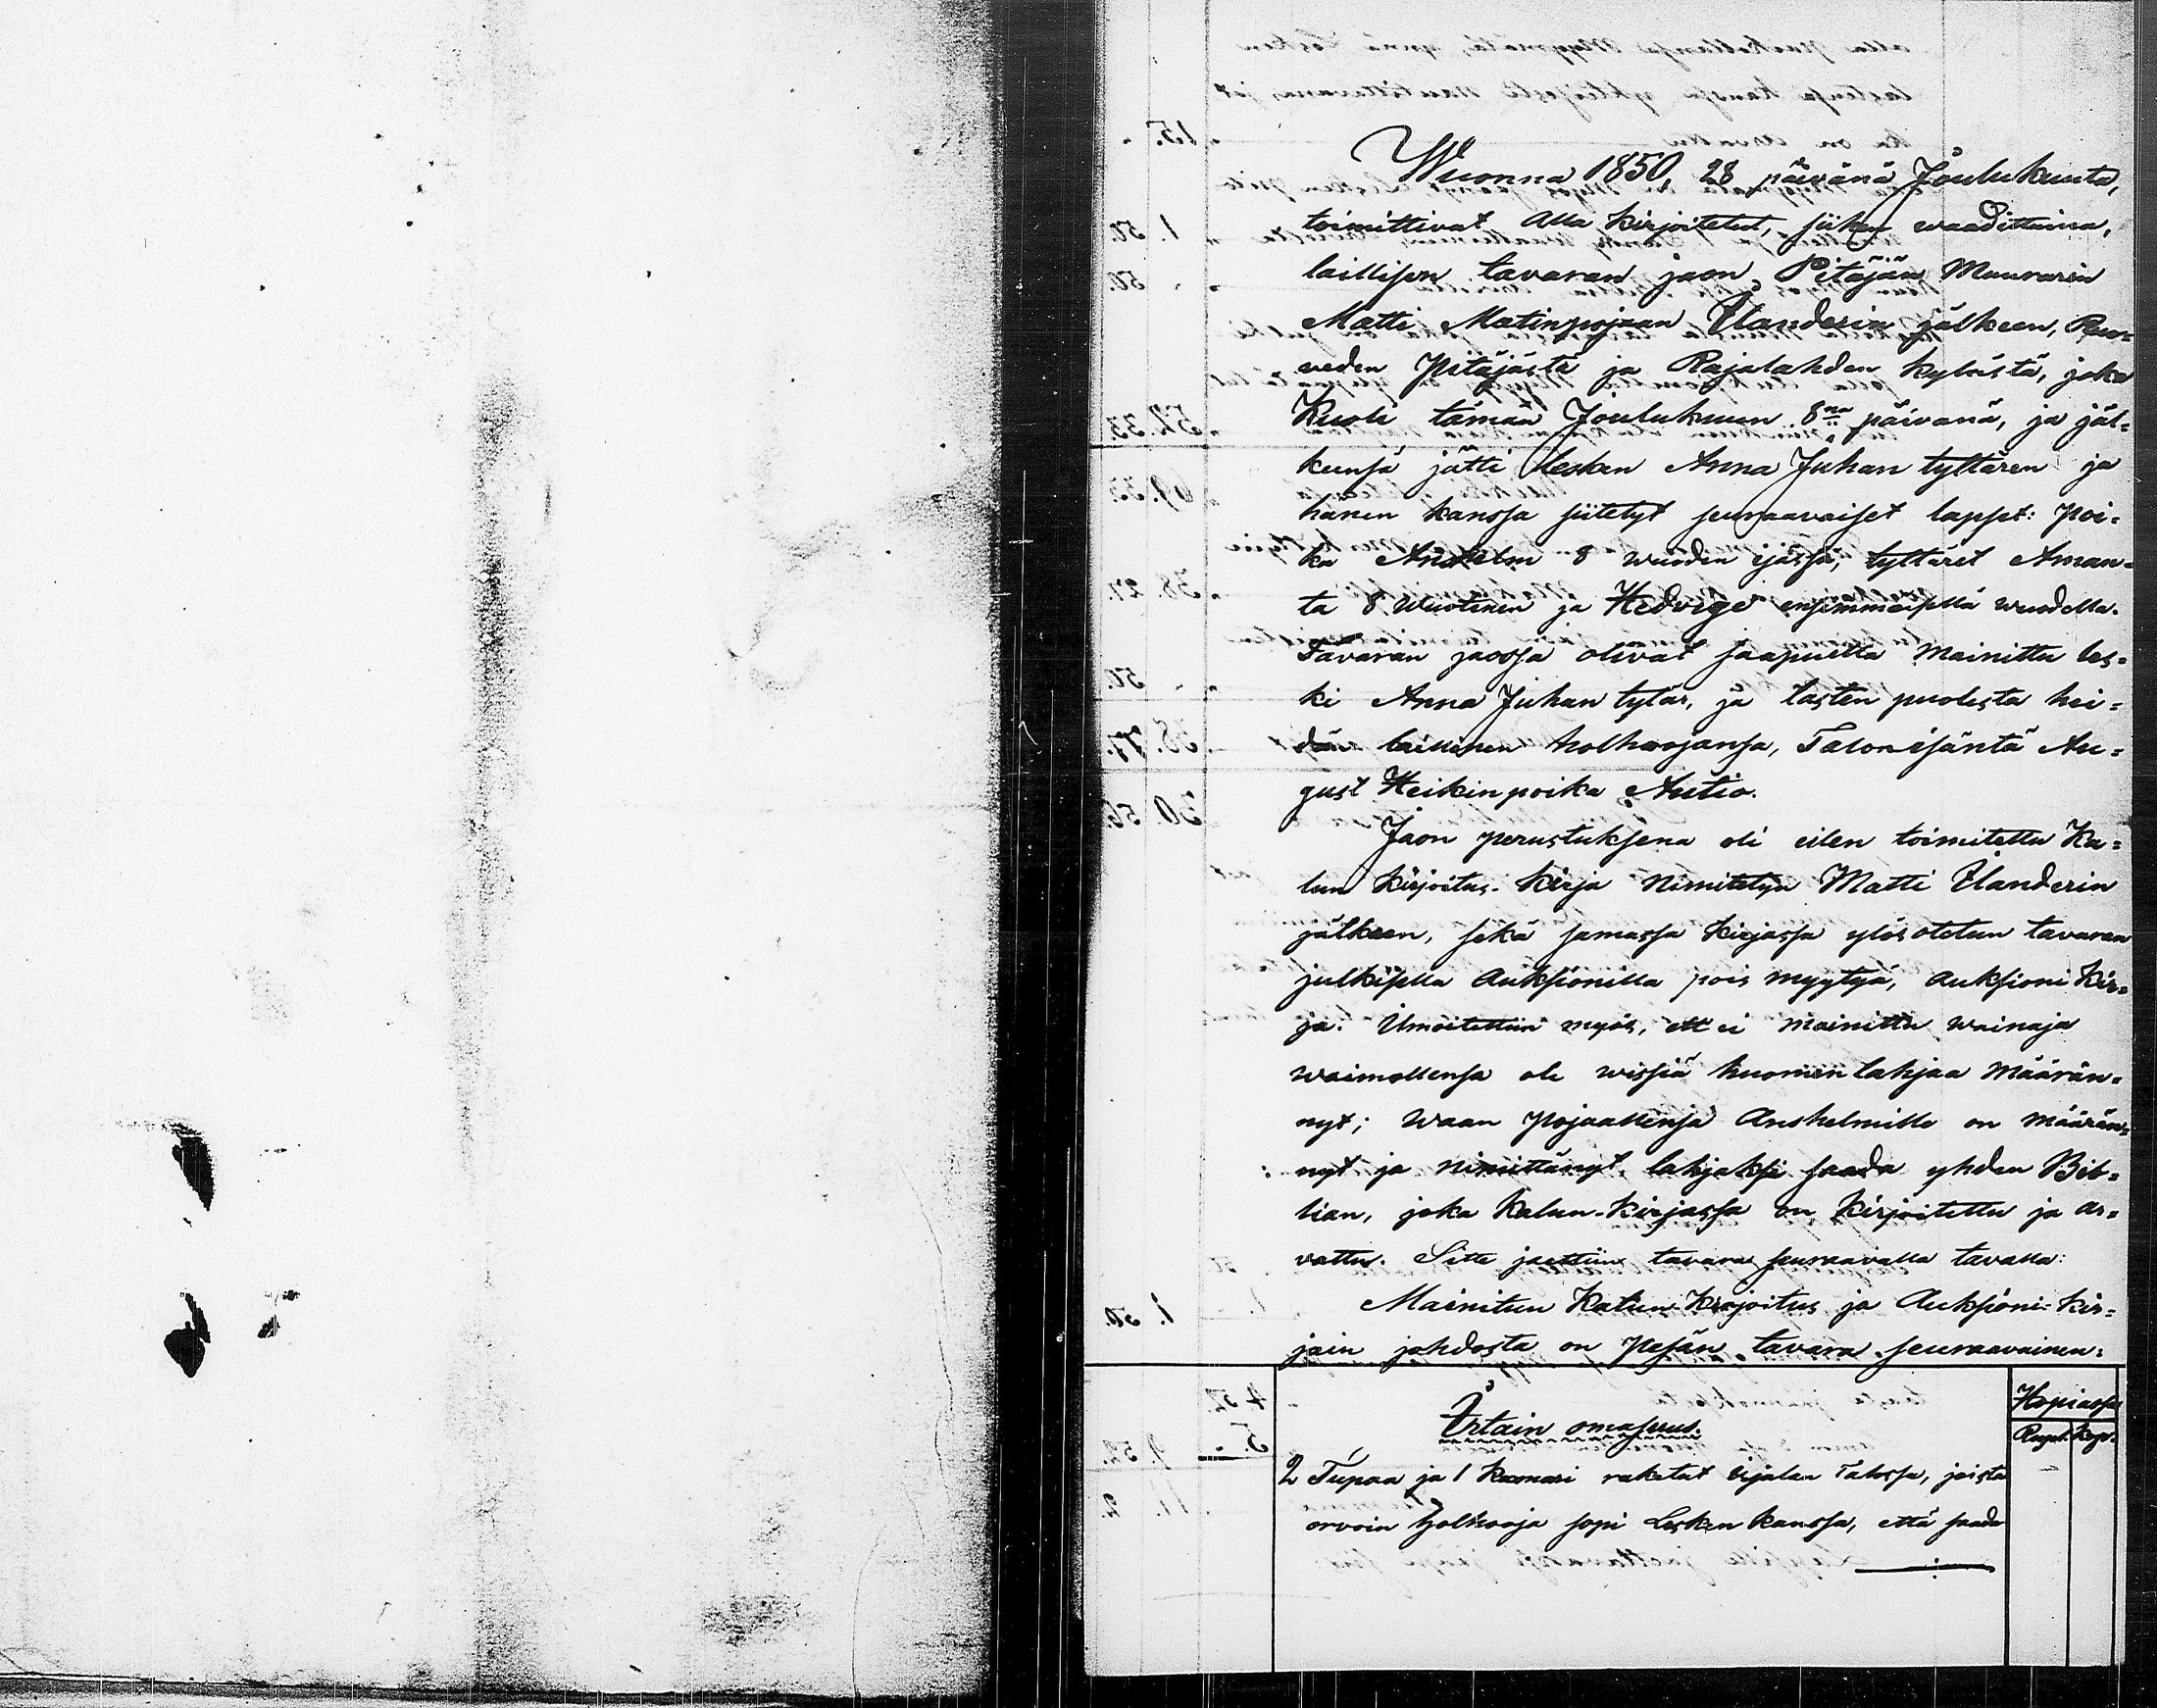 Wuonna 1850, 28 päivänä Joulukuuta,
toimittivat alla kirjoitetut, siihen waadittuina,
laillisen tavaran jaon, Pitäjän Muurarin
Matti Matinpojaan Ulanderin jälkeen, Ruo-
weden Pitäjästä ja Rajalahden kylästä, joka
Kuoli tämän Joulukuun 8na päivänä, ja jäl-
keensä jätti lesken Anna Juhan tyttären ja
hänen kanssa siitetyt seuraavaiset lapset: Poi-
ka Anshelm 8 wuoden ijässä, tyttäret Aman-
ta 8 wuotinen ja Hedvige ensimmäisellä wuodella.
Tavaran jaossa olivat saapuilla mainittu les-
ki Anna Juhan tytär, ja lasten puolesta hei-
dän laillinen holhoojansa, Talon isäntä Au-
gust Heikinpoika Autio.
Jaon perustuksena oli eilen toimitettu Ka-
lun kirjoitus-kirja nimitetyn Matti Ulanderin
jälkeen, sekä samassa kirjassa ylösotetun tavaran
julkisella auksionilla pois myytyä, auksioni kir-
ja. Ilmoitettiin myös, ett ei mainittu wainaja
waimollensa ole wissiä huomenlahjaa määrän-
nyt; waan pojaallensa Anshelmille on määrän-
nyt ja nimittänyt lahjaksi saada yhden Bib-
lian, joka Kalun-kirjassa on kirjoitettu ja ar-
vattu. Sitte jaettiin tavara seuraavalla tavalla:
Mainitun Kalun-kirjoitus ja Auksioni-kir-
jain johdosta on Pesän tavara seuraavainen:
Hopiassa
Irtain omasuus.
Rupl. Kop.
2 Tupaa ja 1 kamari raketut Talossa, joista
orvoin holhooja sopi Lesken kanssa, että saada